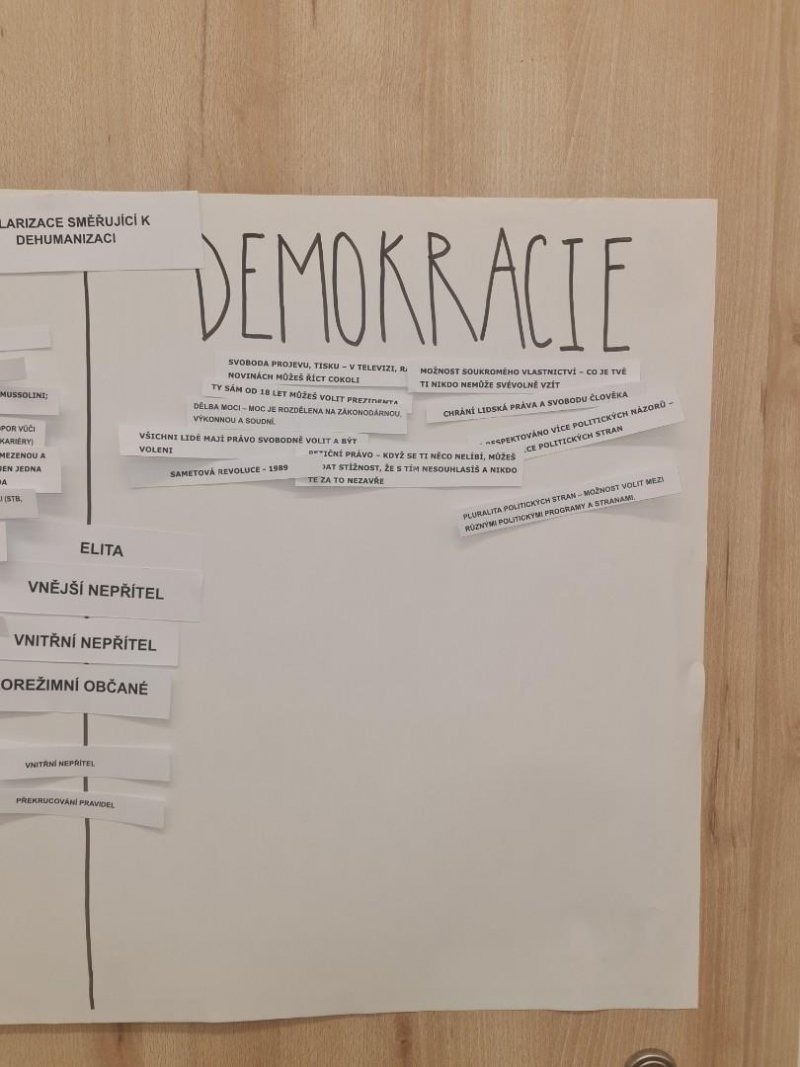 LARIZACE SMĚŘUJÍCÍ K
DEHUMANIZACI
MUSSOLINI;
POR VŮČI
KARIÉRY)
MEZENOU A
JEN JEDNA
DA
I (STB,
ELITA
VNĚJŠÍ NEPŘÍTEL
VNITŘNÍ NEPŘÍTEL
OREŽIMNÍ OBČANÉ
VNITŘNÍ NEPŘÍTEL
PŘEKRUCOVÁNÍ PRAVIDEL
DEMOKRACIE
SVOBODA PROJEVU, TISKU – V TELEVIZI,
NOVINÁCH MŮŽEŠ ŘÍCT COKOLI
TY SÁM OD 18 LET MŮŽEŠ VOLIT PREZIDENTA
DĚLBA MOCI – MOC JE ROZDĚLENA NA ZÁKONODÁRNOU,
VÝKONNOU A SOUDNÍ.
VŠICHNI LIDÉ MAJÍ PRÁVO SVOBODNĚ VOLIT A BÝT
VOLENI
SAMETOVÁ REVOLUCE - 1989
PETIČNÍ PRÁVO – KDYŽ SE TI NĚCO NELÍBÍ, MŮŽEŠ
DAT STÍŽNOST, ŽE S TÍM NESOUHLASÍŠ A NIKDO
TĚ ZA TO NEZAVŘE
MOŽNOST SOUKROMÉHO VLASTNICTVÍ – CO JE TVÉ
TI NIKDO NEMŮŽE SVÉVOLNĚ VZÍT
CHRÁNÍ LIDSKÁ PRÁVA A SVOBODU ČLOVĚKA
RESPEKTOVÁNO VÍCE POLITICKÝCH NÁZORŮ –
CE POLITICKÝCH STRAN
PLURALITA POLITICKÝCH STRAN – MOŽNOST VOLIT MEZI
RŮZNÝMI POLITICKÝMI PROGRAMY A STRANAMI.